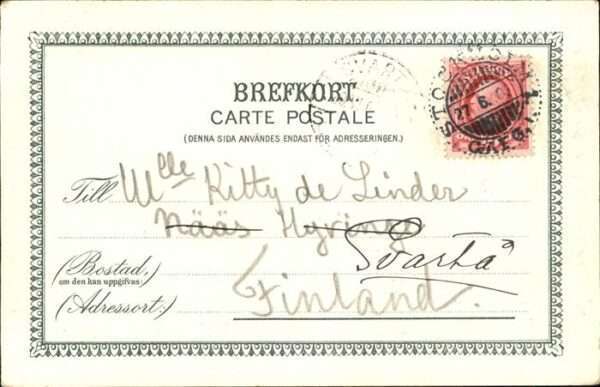 BREFKORT.
CARTE POSTALE
(DENNA SIDA ANVÄNDES ENDAST FÖR ADRESSERINGEN.)
STOCKHOLM
27 6
Till Mlle Kitty de Linder
Nääs
Svartå
(Bostad,)
om den kan uppgifvas
(Adressort:)
Finland.